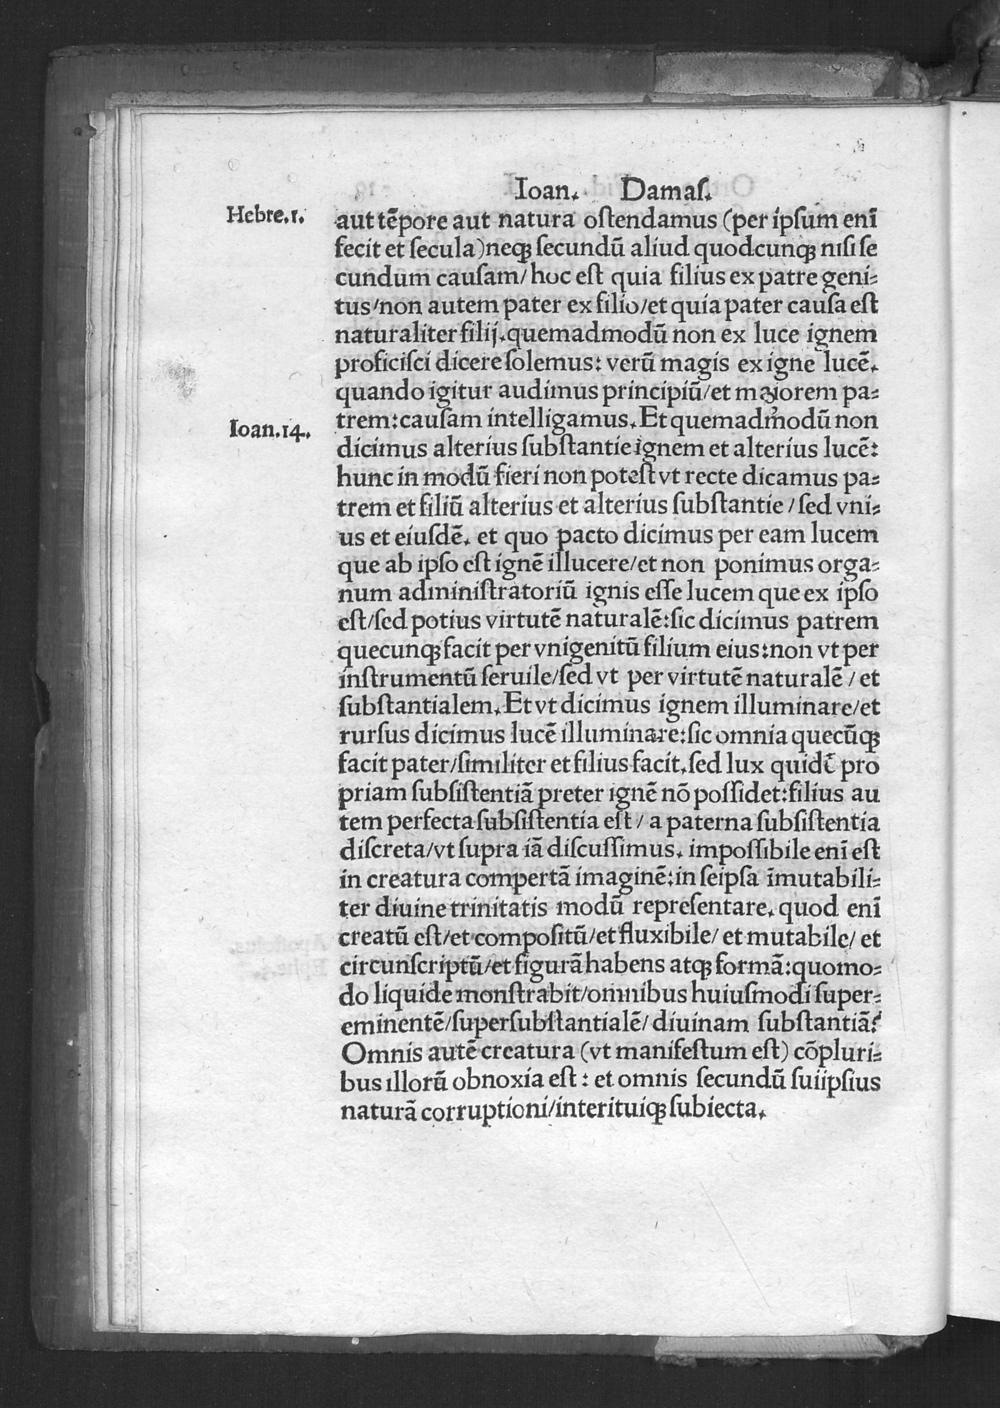 Ioan. Damaſ.
Hebre.1.
aut tẽpore aut natura oſtendamus (per ipſum enĩ
fecit et ſecula)neqꝫ ſecundũ aliud quodcunqꝫ niſi ſe
cundum cauſam/hoc eſt quia filius ex patre geni⸗
tus/non autem pater ex filio/et quia pater cauſa eſt
naturaliter filij.quemadmodũ non ex luce ignem
proficiſci dicere ſolemus: verũ magis ex igne lucẽ.
quando igitur audimus principiũ/et maiorem pa⸗
Ioan.14.
trem:cauſam intelligamus.Et quemadmodũ non
dicimus alterius ſubſtantie ignem et alterius lucẽ:
hunc in modũ fieri non poteſt vt recte dicamus pa⸗
trem et filiũ alterius et alterius ſubſtantie/ſed vni⸗
us et eiuſdẽ. et quo pacto dicimus per eam lucem
que ab ipſo eſt ignẽ illucere/et non ponimus orga⸗
num adminiſtratoriũ ignis eſſe lucem que ex ipſo
eſt/ſed potius virtutẽ naturalẽ:ſic dicimus patrem
quecunqꝫ facit per vnigenitũ filium eius:non vt per
inſtrumentũ ſeruile/ſed vt per virtutẽ naturalẽ/et
ſubſtantialem.Et vt dicimus ignem illuminare/et
rurſus dicimus lucẽ illuminare:ſic omnia quecũqꝫ
facit pater/ſimiliter et filius facit.ſed lux quidẽ pro
priam ſubſiſtentiã preter ignẽ nõ poſſidet:filius au
tem perfecta ſubſiſtentia eſt/a paterna ſubſiſtentia
diſcreta/vt ſupra iã diſcuſſimus. impoſſibile enĩ eſt
in creatura compertã imaginẽ:in ſeipſa ĩmutabili⸗
ter diuine trinitatis modũ repreſentare. quod enĩ
creatũ eſt/et compoſitũ/et fluxibile/et mutabile/et
circunſcriptũ/et figurã habens atqꝫ formã:quomo⸗
do liquide monſtrabit/omnibus huiuſmodi ſuper⸗
eminentẽ/ſuperſubſtantialẽ/diuinam ſubſtantiã?
Omnis autẽ creatura (vt manifeſtum eſt) cõpluri⸗
bus illorũ obnoxia eſt: et omnis ſecundũ ſuiipſius
naturã corruptioni/interituiqꝫ ſubiecta.